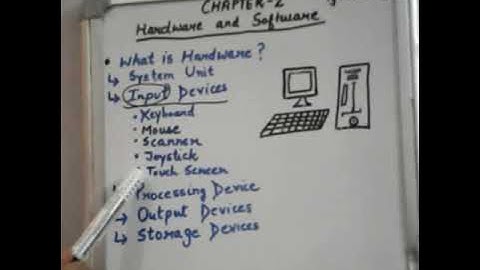 CHAPTER-2
Hardware and Software
• What is Hardware?
↳ System Unit
↳ Input Devices
• Keyboard
• Mouse
• Scanner
• Joystick
• Touch Screen
Processing Device
↳ Output Devices
↳ Storage Devices